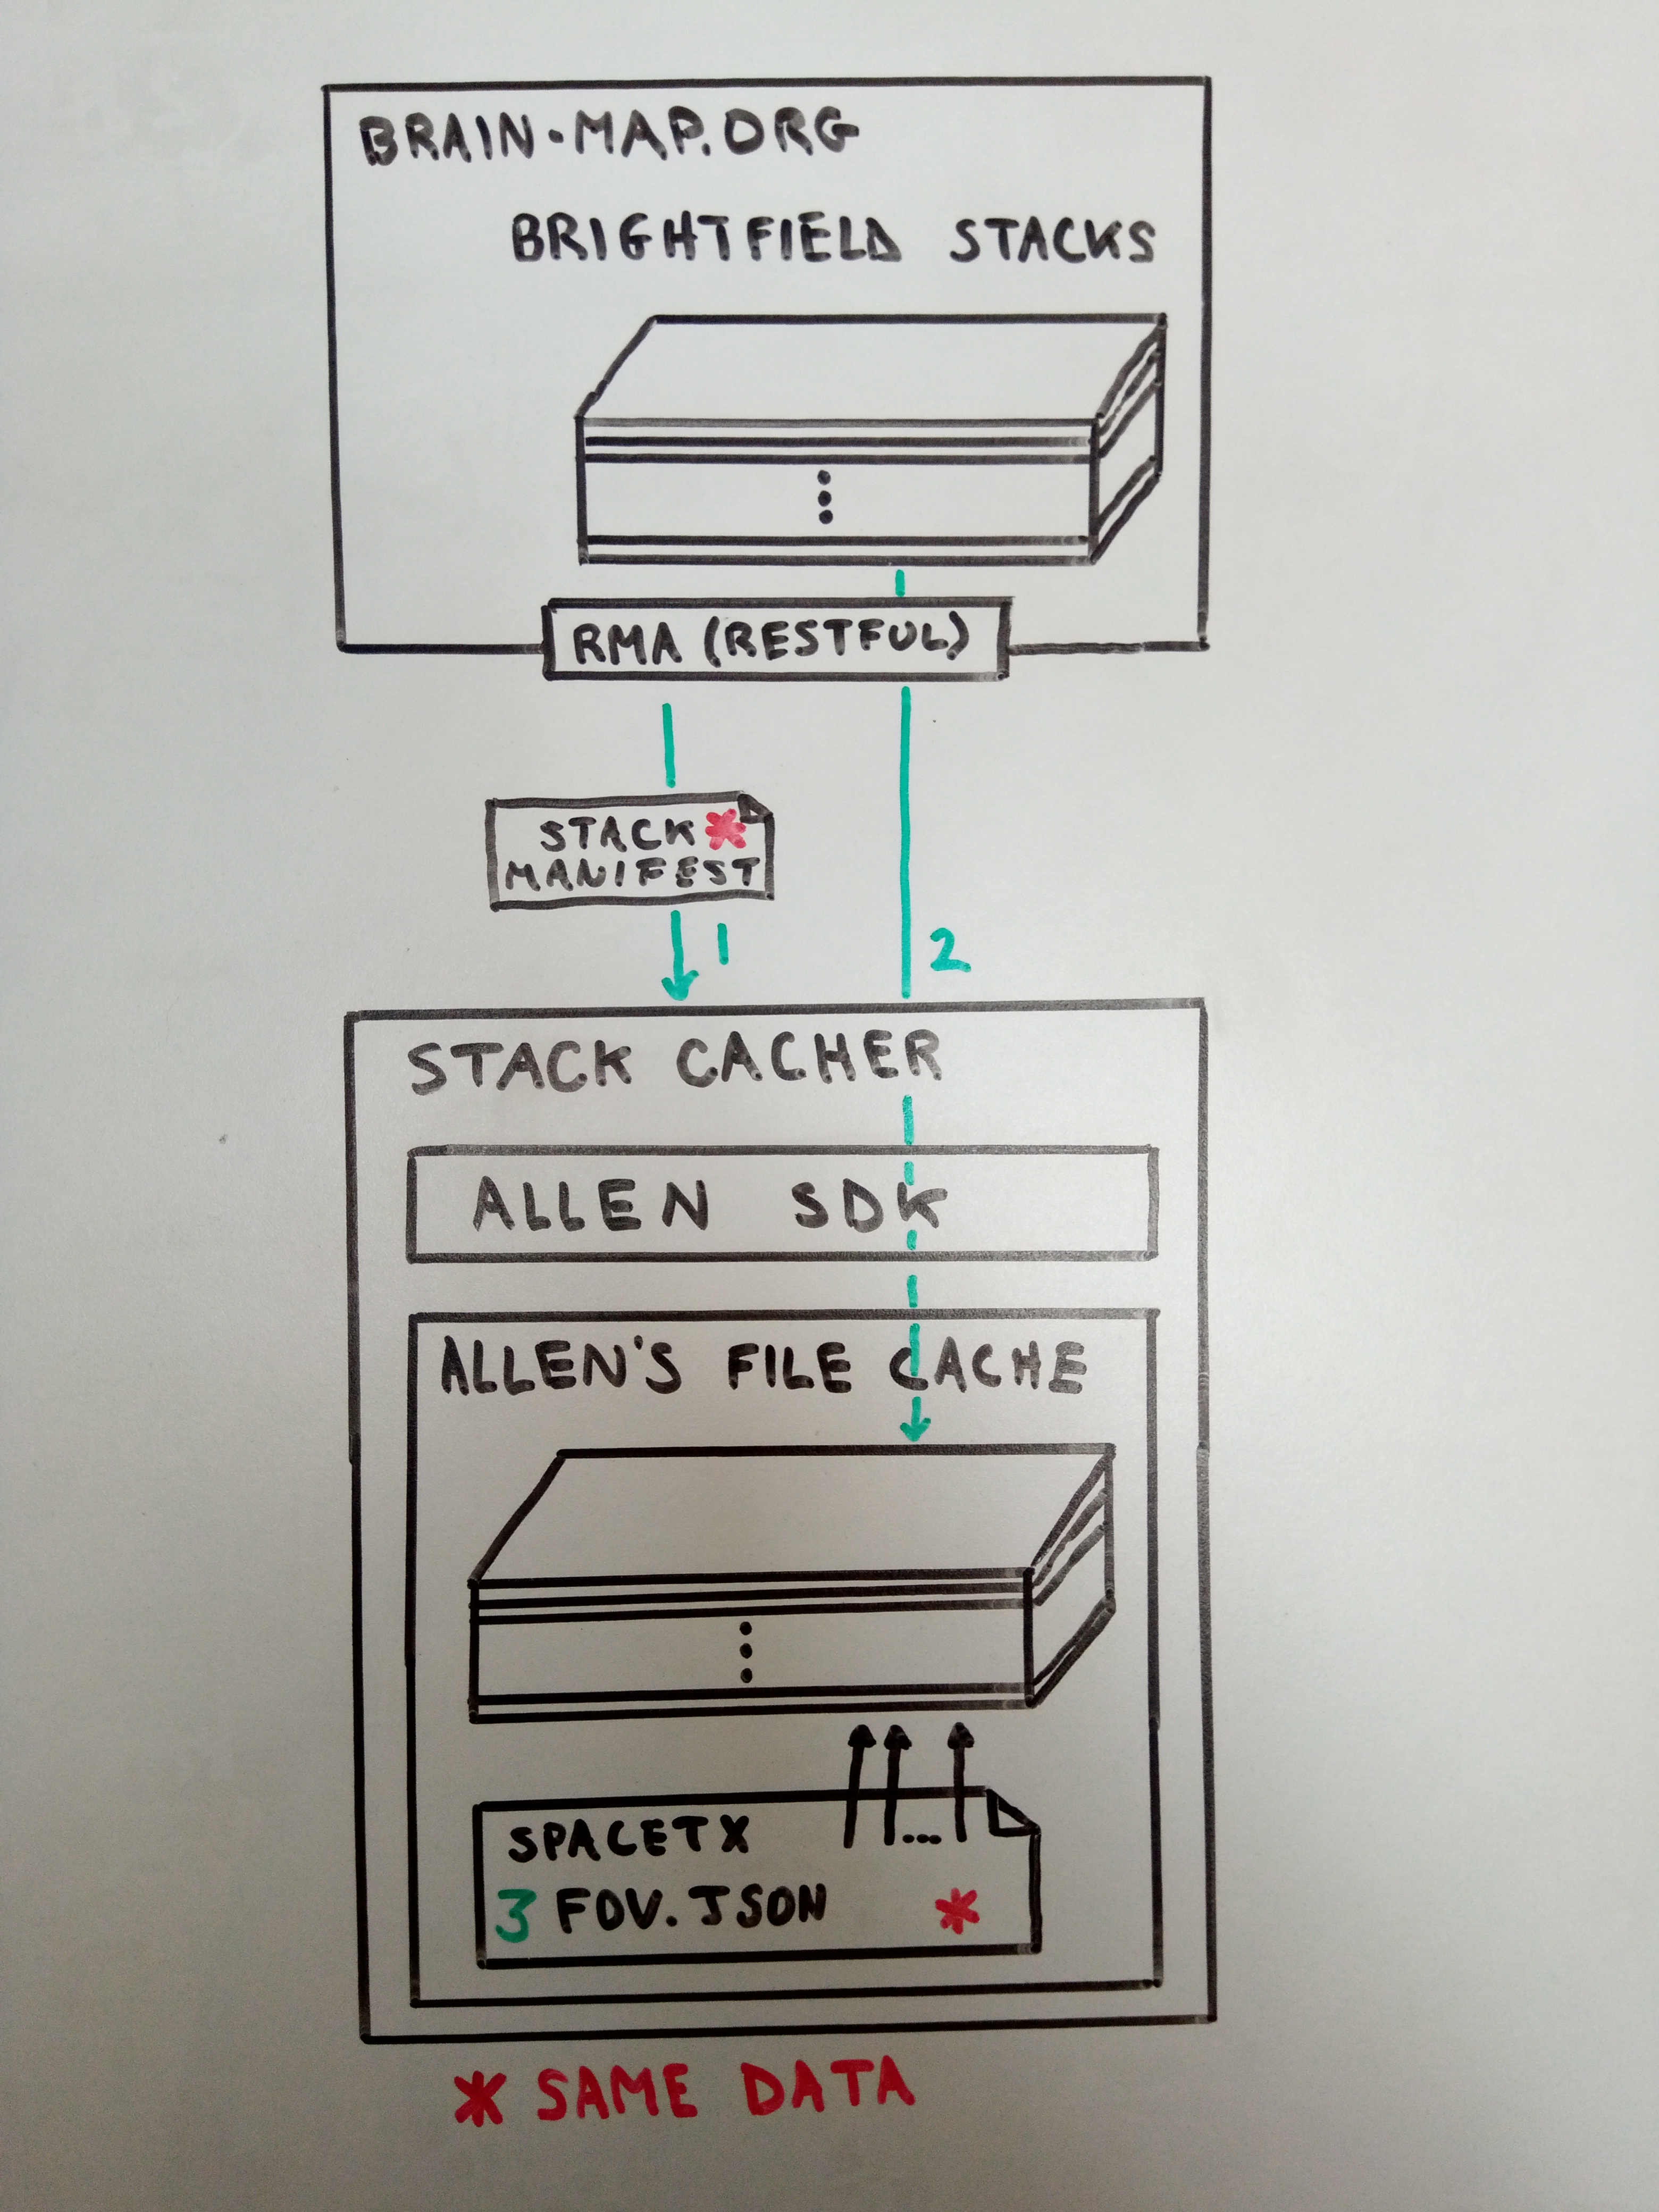 BRAIN-MAP.ORG
BRIGHTFIELD STACKS
RMA (RESTFUL)
STACK *
MANIFEST
1
2
STACK CACHER
ALLEN SDK
ALLEN'S FILE CACHE
...
SPACETX
3 FOV.JSON *
* SAME DATA